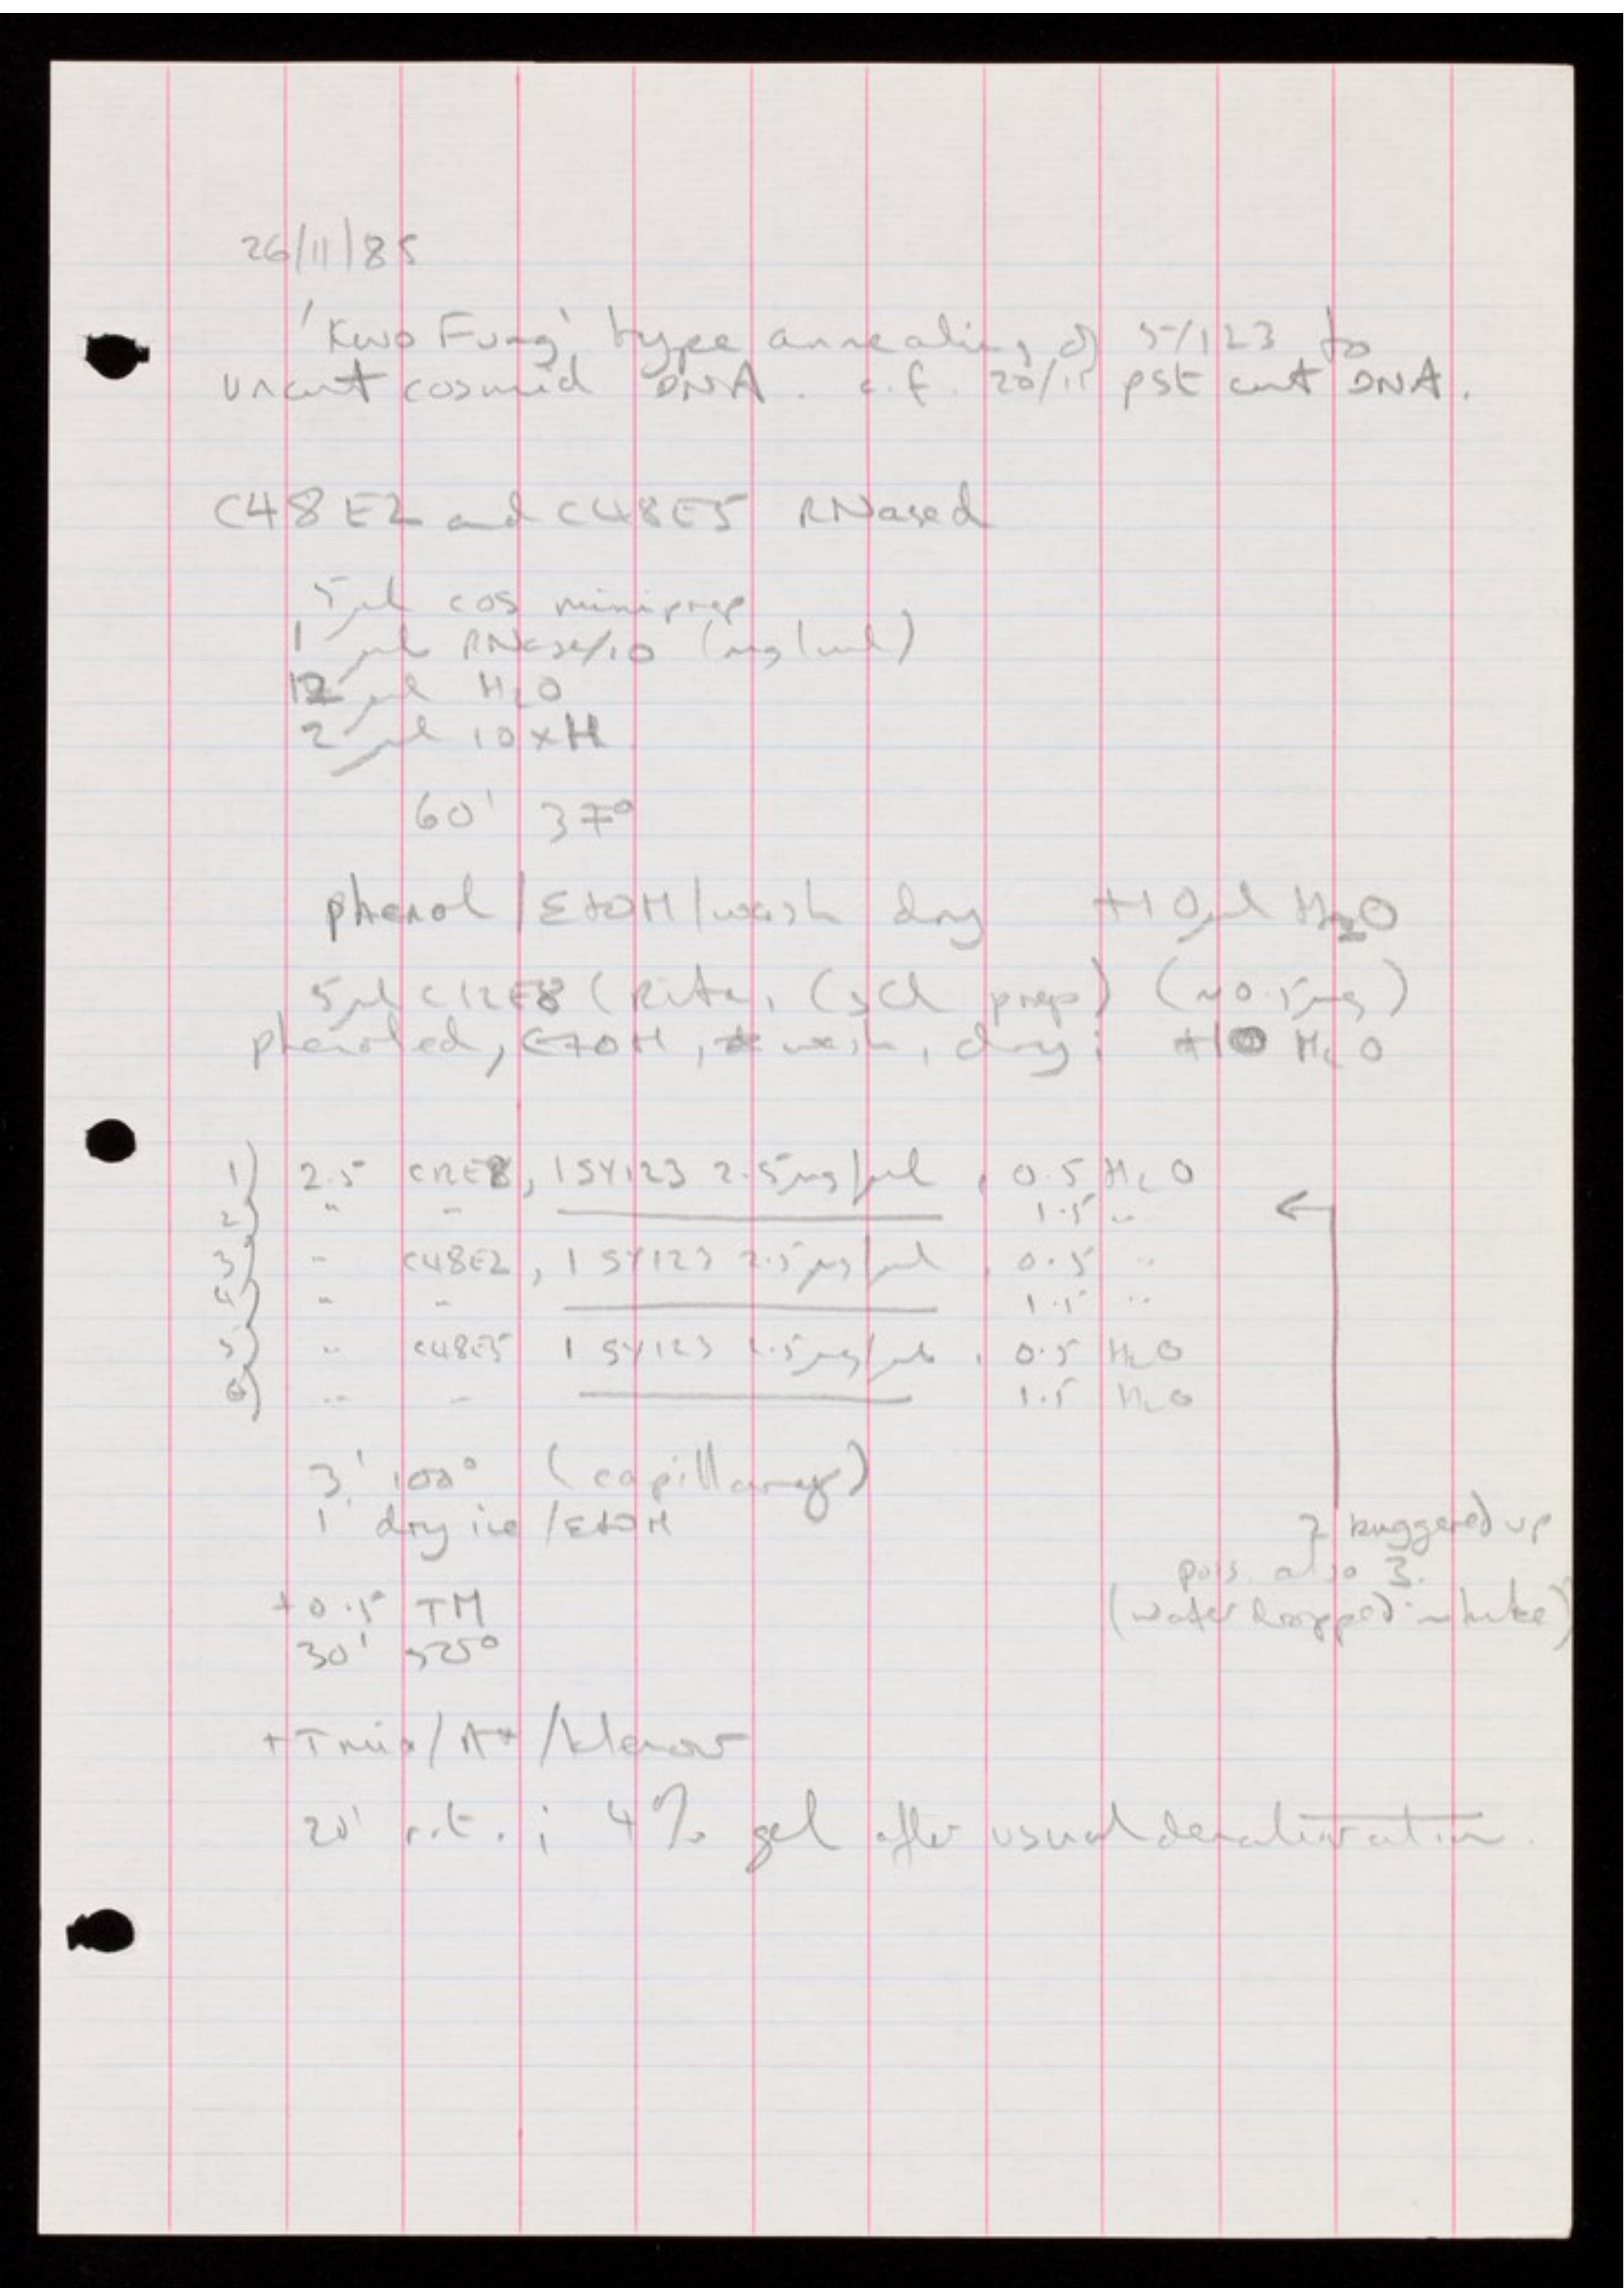 26/11/85
'Kwo Fung' type annealing of SY123 to
uncut cosmid DNA. c.f. 20/11 pst cut DNA.
C48E2 and C48E5 RNased
5 µl cos miniprep
1 µl RNase/10 (mg/ml)
12 µl H2O
2 µl 10xH
60' 37°
phenol/EtOH/wash dry +10µl H2O
5µl C12E8 (Rita, CsCl prep) (~0.5µg)
phenoled, EtOH, wash, dry; +10 H2O
1) 2.5 C12E8, 1 SY123 2.5µg/µl, 0.5 H2O
2) " " 1.5 "
3) " C48E2, 1 SY123 2.5µg/µl, 0.5 "
4) " " 1.5 "
5) " C48E5 1 SY123 2.5µg/µl, 0.5 H2O
6) " " 1.5 H2O
3' 100° (capillary)
1' dry ice/EtOH
2 buggered up
poss. also 3.
(water dropped in tube)
+0.5 TM
30' 55°
+Tmix/A*/klenow
20' r.t.; 4% gel after usual denaturation.